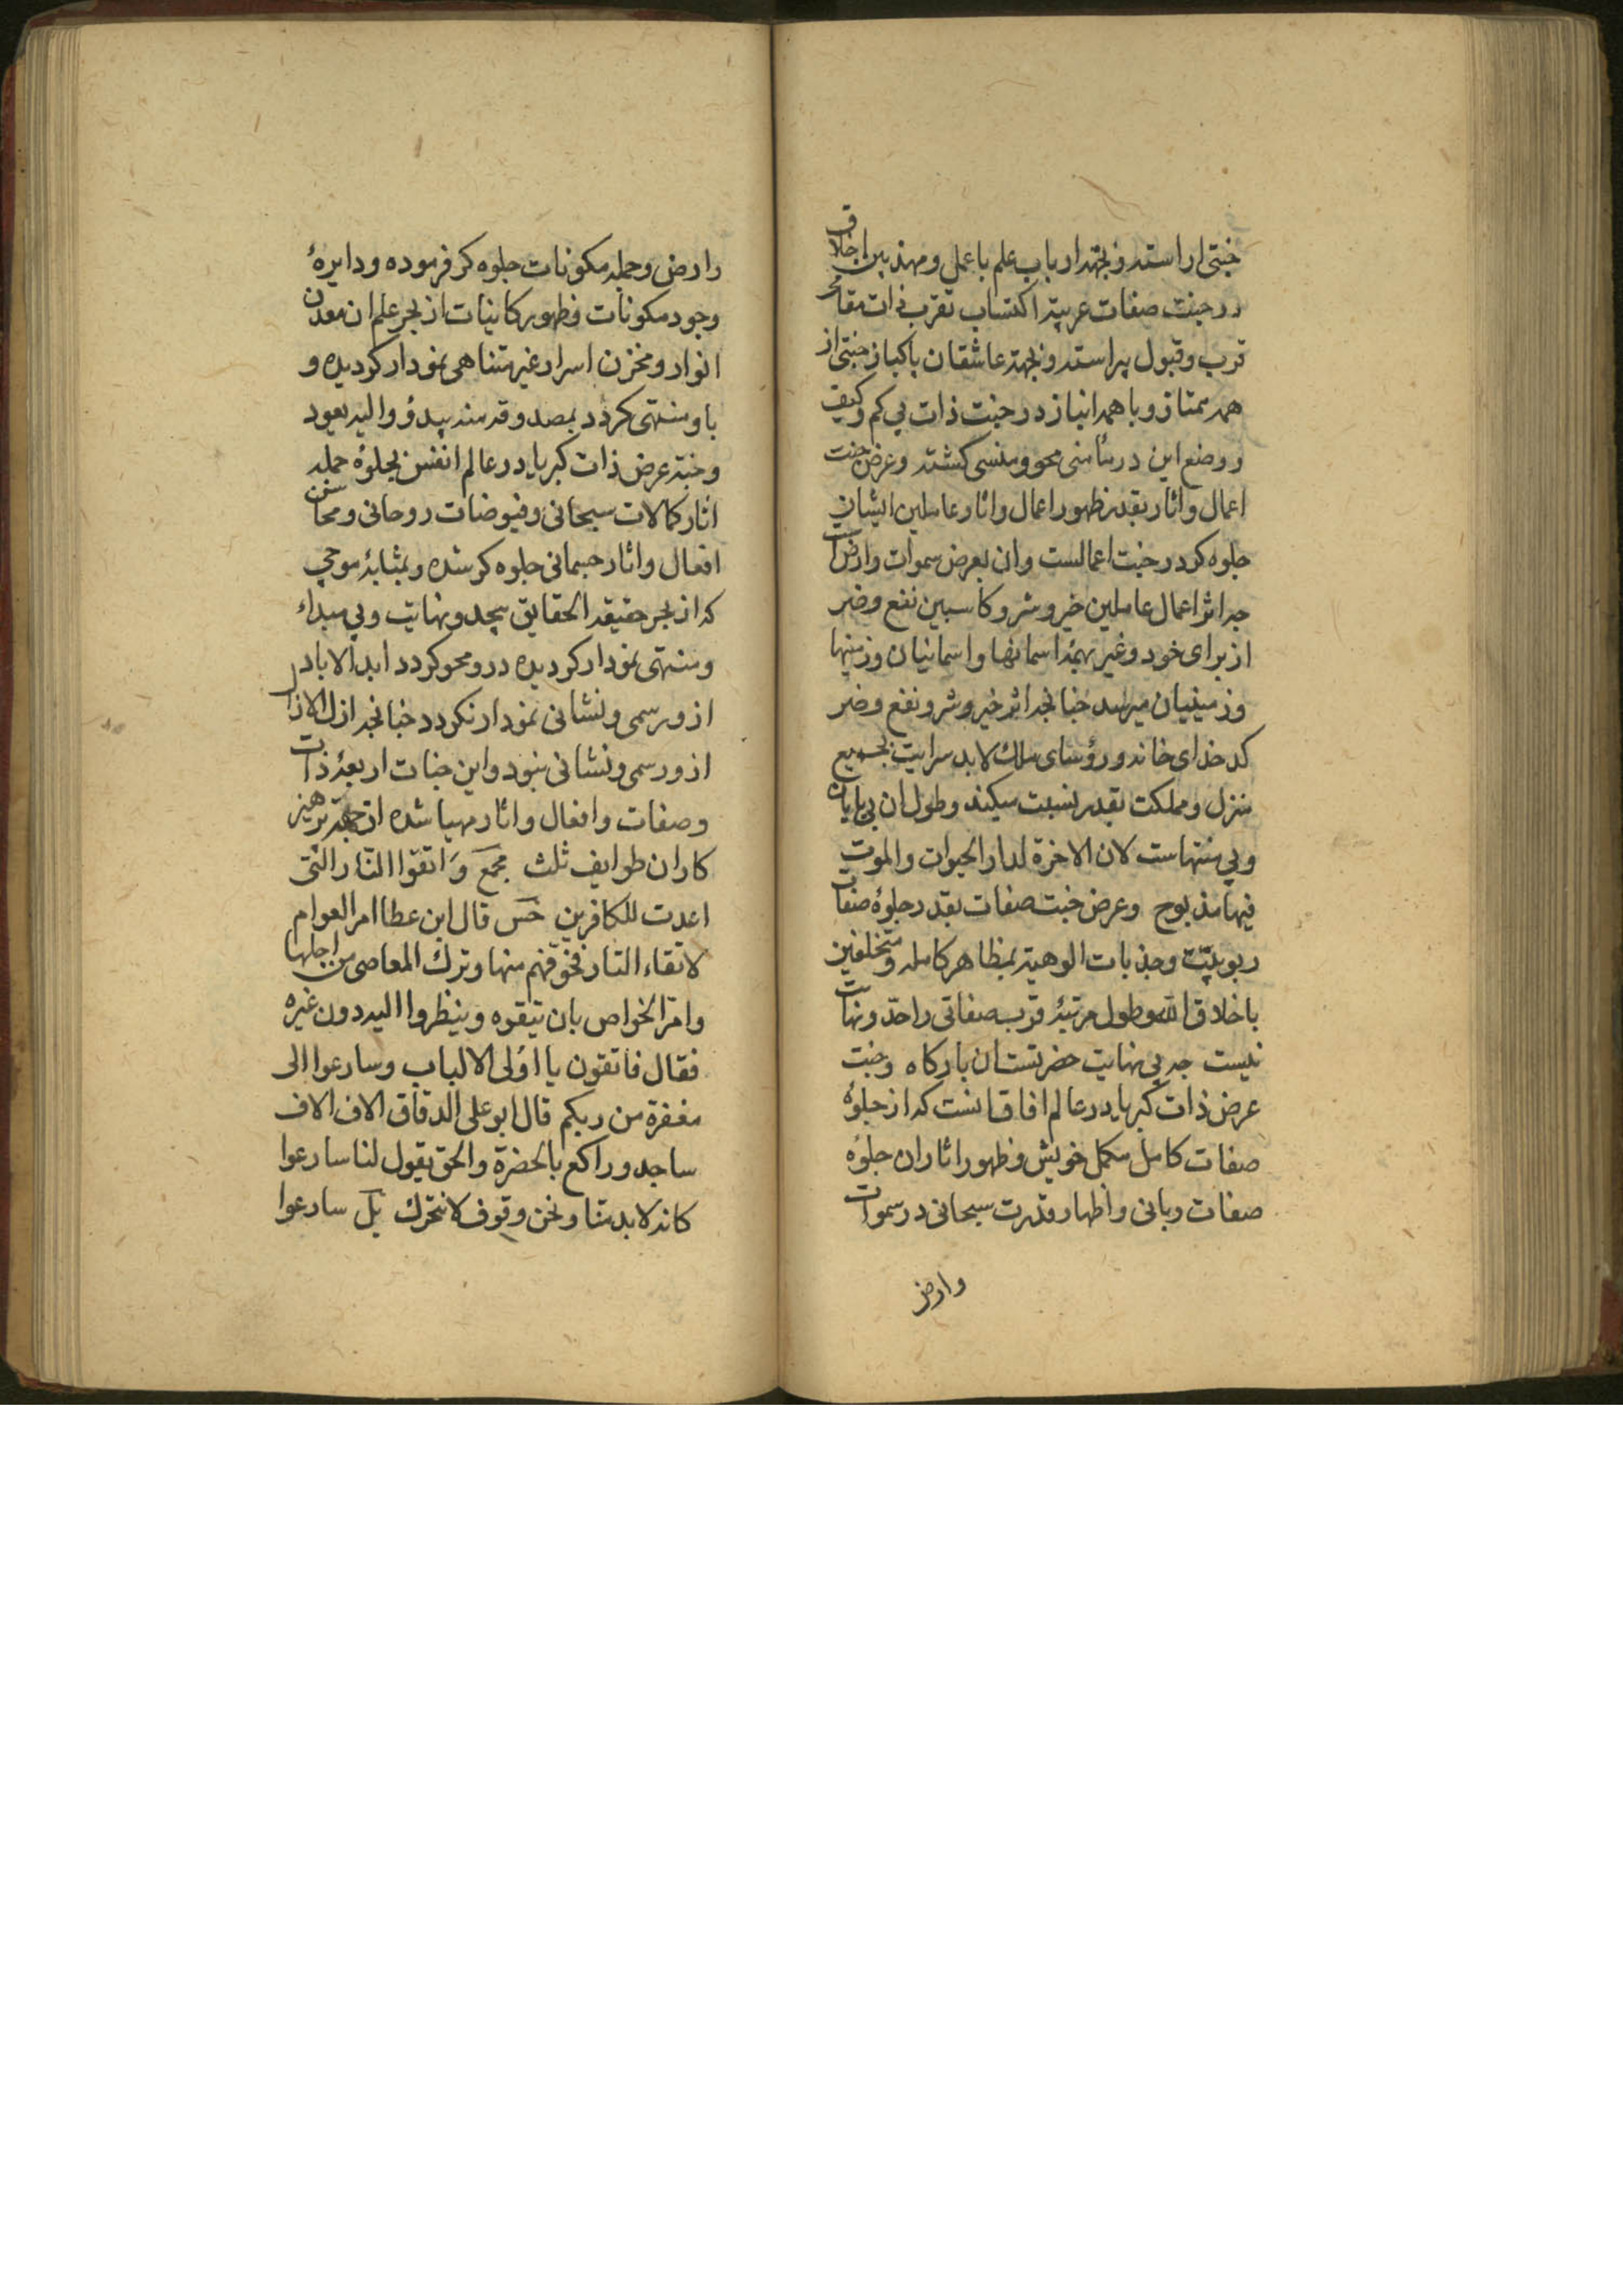 جنتی اراسته و بجهة ارباب علم باعمل و مهذبین اخلاق
در جنت صفات عربیّه اکتساب تقرب ذات مقام
قرب و قبول پیراسته و بجهة عاشقان پاکباز جنتی از
همه ممتاز و با همه انباز در جنت ذات بی کم و کیف
و وضع این در منسی محو و منسی کشته و عرض جنت
اعمال و اثار بقدر ظهور اعمال و اثار عاملین ایشان
جلوه کر در جنت اعمالست و ان بعرض سموات وارض است
چه اثر اعمال عاملین خیر و شر و کاسبین نفع و ضر
از برای خود و غیر بهمهٔ اسمانها و اسمانیان و زمینها
و زمینیان میرسد چنانجه اثر خیر و شر و نفع و ضر
کدخدای خانه و رؤسای ملك لابد سرایت بجمیع
منزل و مملکت بقدر نسبت میکند و طول ان بی پایان
و بی منتهاست لان الاخرة لدار الحیوان والموت
فیها مذبوح وعرض جنت صفات بقدر جلوهٔ صفات
ربوبیّت وجذبات الوهیة بمظاهر کامله و متخلقین
باخلاق الله وطول مرتبهٔ قرب صفاتی راحدّ ونهایت
نیست چه بی نهایت حضرتست ان بارکاه وجنت
عرض ذات کبریا در عالم افاق انست که از جلوهٔ
صفات کامل مکمل خویش وظهور اثار ان جلوهٔ
صفات ربانی واظهار قدرت سبحانی در سموات
وارض
را رض وجمله مکونات جلوه کر فرموده ودایرهٔ
وجود مکونات وظهور کاینات از بحر علم ان معدن
انوار و مخزن اسرار غیر متناهی نمودار کردیده و
باو منتهی کردد بمصدوقه منه یبدؤ والیه یعود
وجنة عرض ذات کبریا در عالم انفس بجلوهٔ جمله
اثار کمالات سبحانی وفیوضات روحانی ومحاسن
افعال واثار جسمانی جلوه کر شده وبمثابهٔ موجی
که از بحر حقیقة الحقایق بیحد ونهایت وبی مبداء
ومنتهی نمودار کردیده در و محو کردد ابد الاباد
از و رسمی ونشانی نمودار نکردد چنانجه ازل الازال
از و رسمی ونشانی نبود واین جنات اربعهٔ ذات
وصفات وافعال واثار مهیا شده از جهة پرهیز
کاران طوایف ثلث مجمع وَاتقوا النّار الّتی
اعدت للکافرین حس قال ابن عطا امر العوام
لاتقاء النار فخوّفهم منها وترك المعاصی من اجلها
وامر الخواص بان یتقوه وینظروا الیه دون غیره
فقال فاتقون یا اولی الالباب وسارعوا الی
مغفرة من ربکم قال ابو علی الدقاق الاف الاف
ساجد وراکع بالحضرة والحق یقول لنا سارعوا
کانه لابد منّا ونحن وقوف لانتحرك بل سارعوا